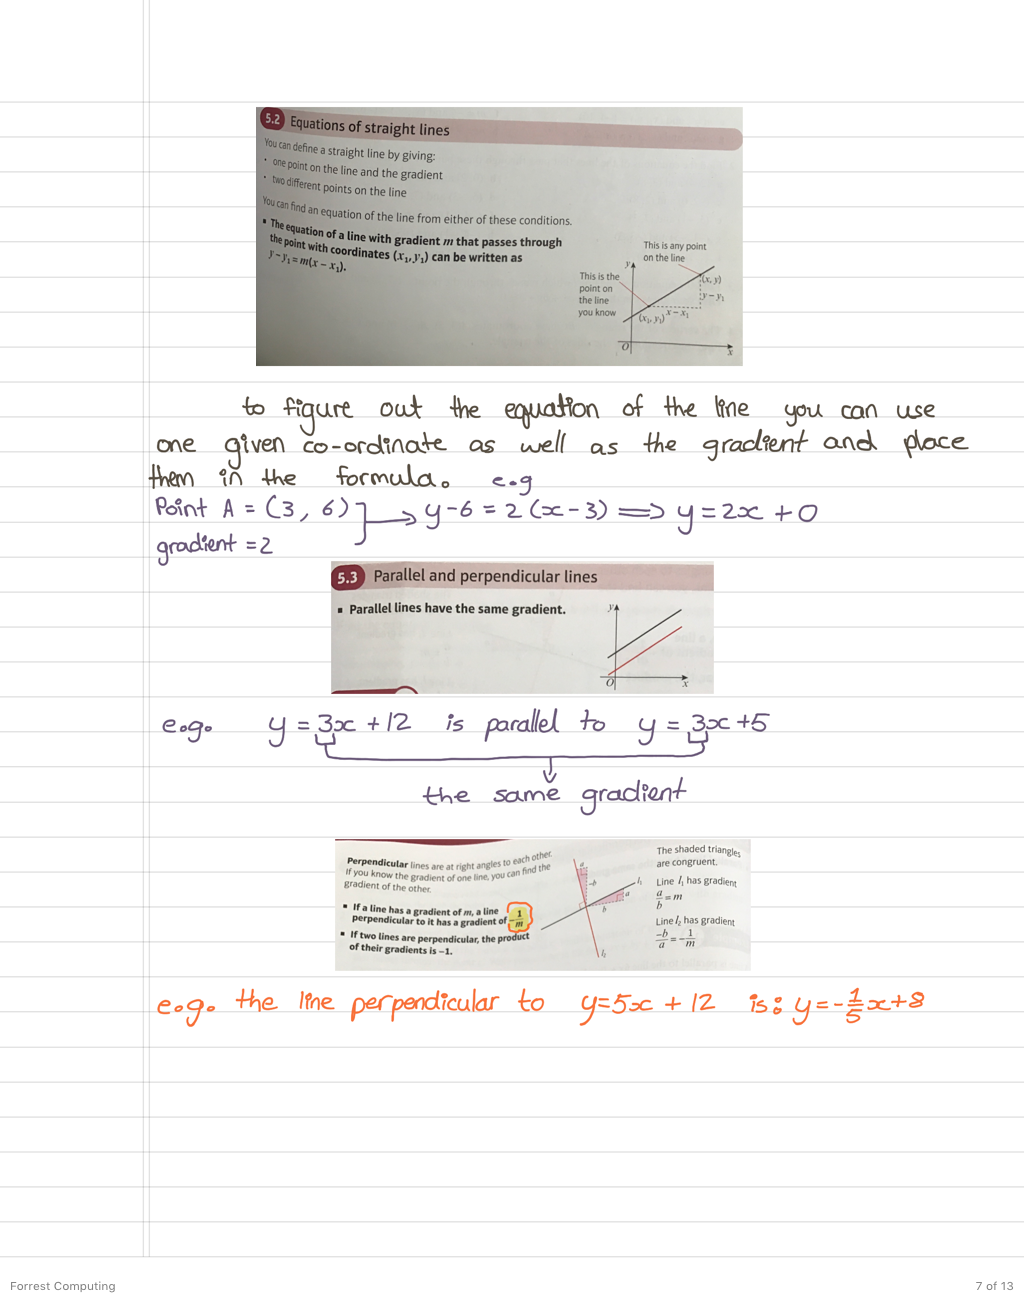 5.2 Equations of straight lines
You can define a straight line by giving:
• one point on the line and the gradient
• two different points on the line
You can find an equation of the line from either of these conditions.
▪ The equation of a line with gradient m that passes through
the point with coordinates (x₁, y₁) can be written as
y − y₁ = m(x − x₁).
This is any point
on the line
This is the
point on
the line
you know
y
(x, y)
y − y₁
x − x₁
(x₁, y₁)
O
x
to figure out the equation of the line you can use
one given co-ordinate as well as the gradient and place
them in the formula. e.g
Point A = (3, 6) } → y-6 = 2(x-3) ⟹ y = 2x + 0
gradient = 2
5.3 Parallel and perpendicular lines
▪ Parallel lines have the same gradient.
y
O
x
e.g. y = 3x + 12 is parallel to y = 3x + 5
the same gradient
Perpendicular lines are at right angles to each other.
If you know the gradient of one line, you can find the
gradient of the other.
▪ If a line has a gradient of m, a line
perpendicular to it has a gradient of −1/m
▪ If two lines are perpendicular, the product
of their gradients is −1.
a
−b
l₁
a
b
l₂
The shaded triangles
are congruent.
Line l₁ has gradient
a/b = m
Line l₂ has gradient
−b/a = −1/m
e.g. the line perpendicular to y=5x + 12 is: y = -1/5x+8
Forrest Computing
7 of 13